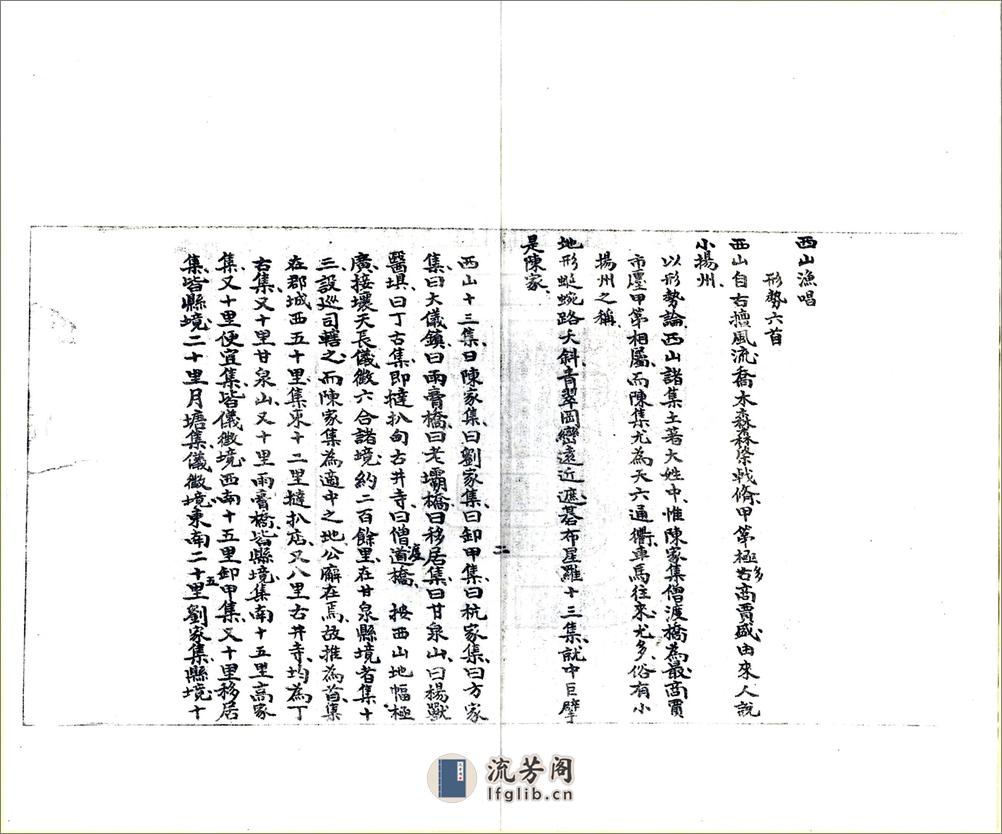 西山漁唱
形勢六首
西山自古擅風流喬木森森棨戟脩甲第極多商賈盛由來人說
小揚州
以形勢論西山諸集土著大姓中惟陳家集僧渡橋為最商賈
市廛甲第相屬而陳集尤為天六通衢車馬往來尤多俗有小
揚州之稱
地形蜿蜒路夭斜青翠岡巒遠近遮碁布星羅十三集就中巨擘
是陳家
西山十三集曰陳家集曰劉家集曰卸甲集曰杭家集曰方家
集曰大儀鎮曰雨膏橋曰老壩橋曰移居集曰甘泉山曰楊獸
醫埧曰丁古集即撻扒甸古井寺曰僧道橋 按西山地幅極
渡
廣接壤天長儀徵六合諸境約二百餘里在甘泉縣境者集十
三設巡司轄之而陳家集為適中之地公廨在焉故推為首集
在郡城西五十里集東十二里撻扒店又八里古井寺均為丁
古集又十里甘泉山又十里雨膏橋皆縣境集南十五里高家
集又十里便宜集皆儀徵境西南十五里卸甲集又十里移居
集皆縣境二十里月塘集儀徵境東南二十里劉家集縣境十
五
二
流芳阁
lfglib.cn